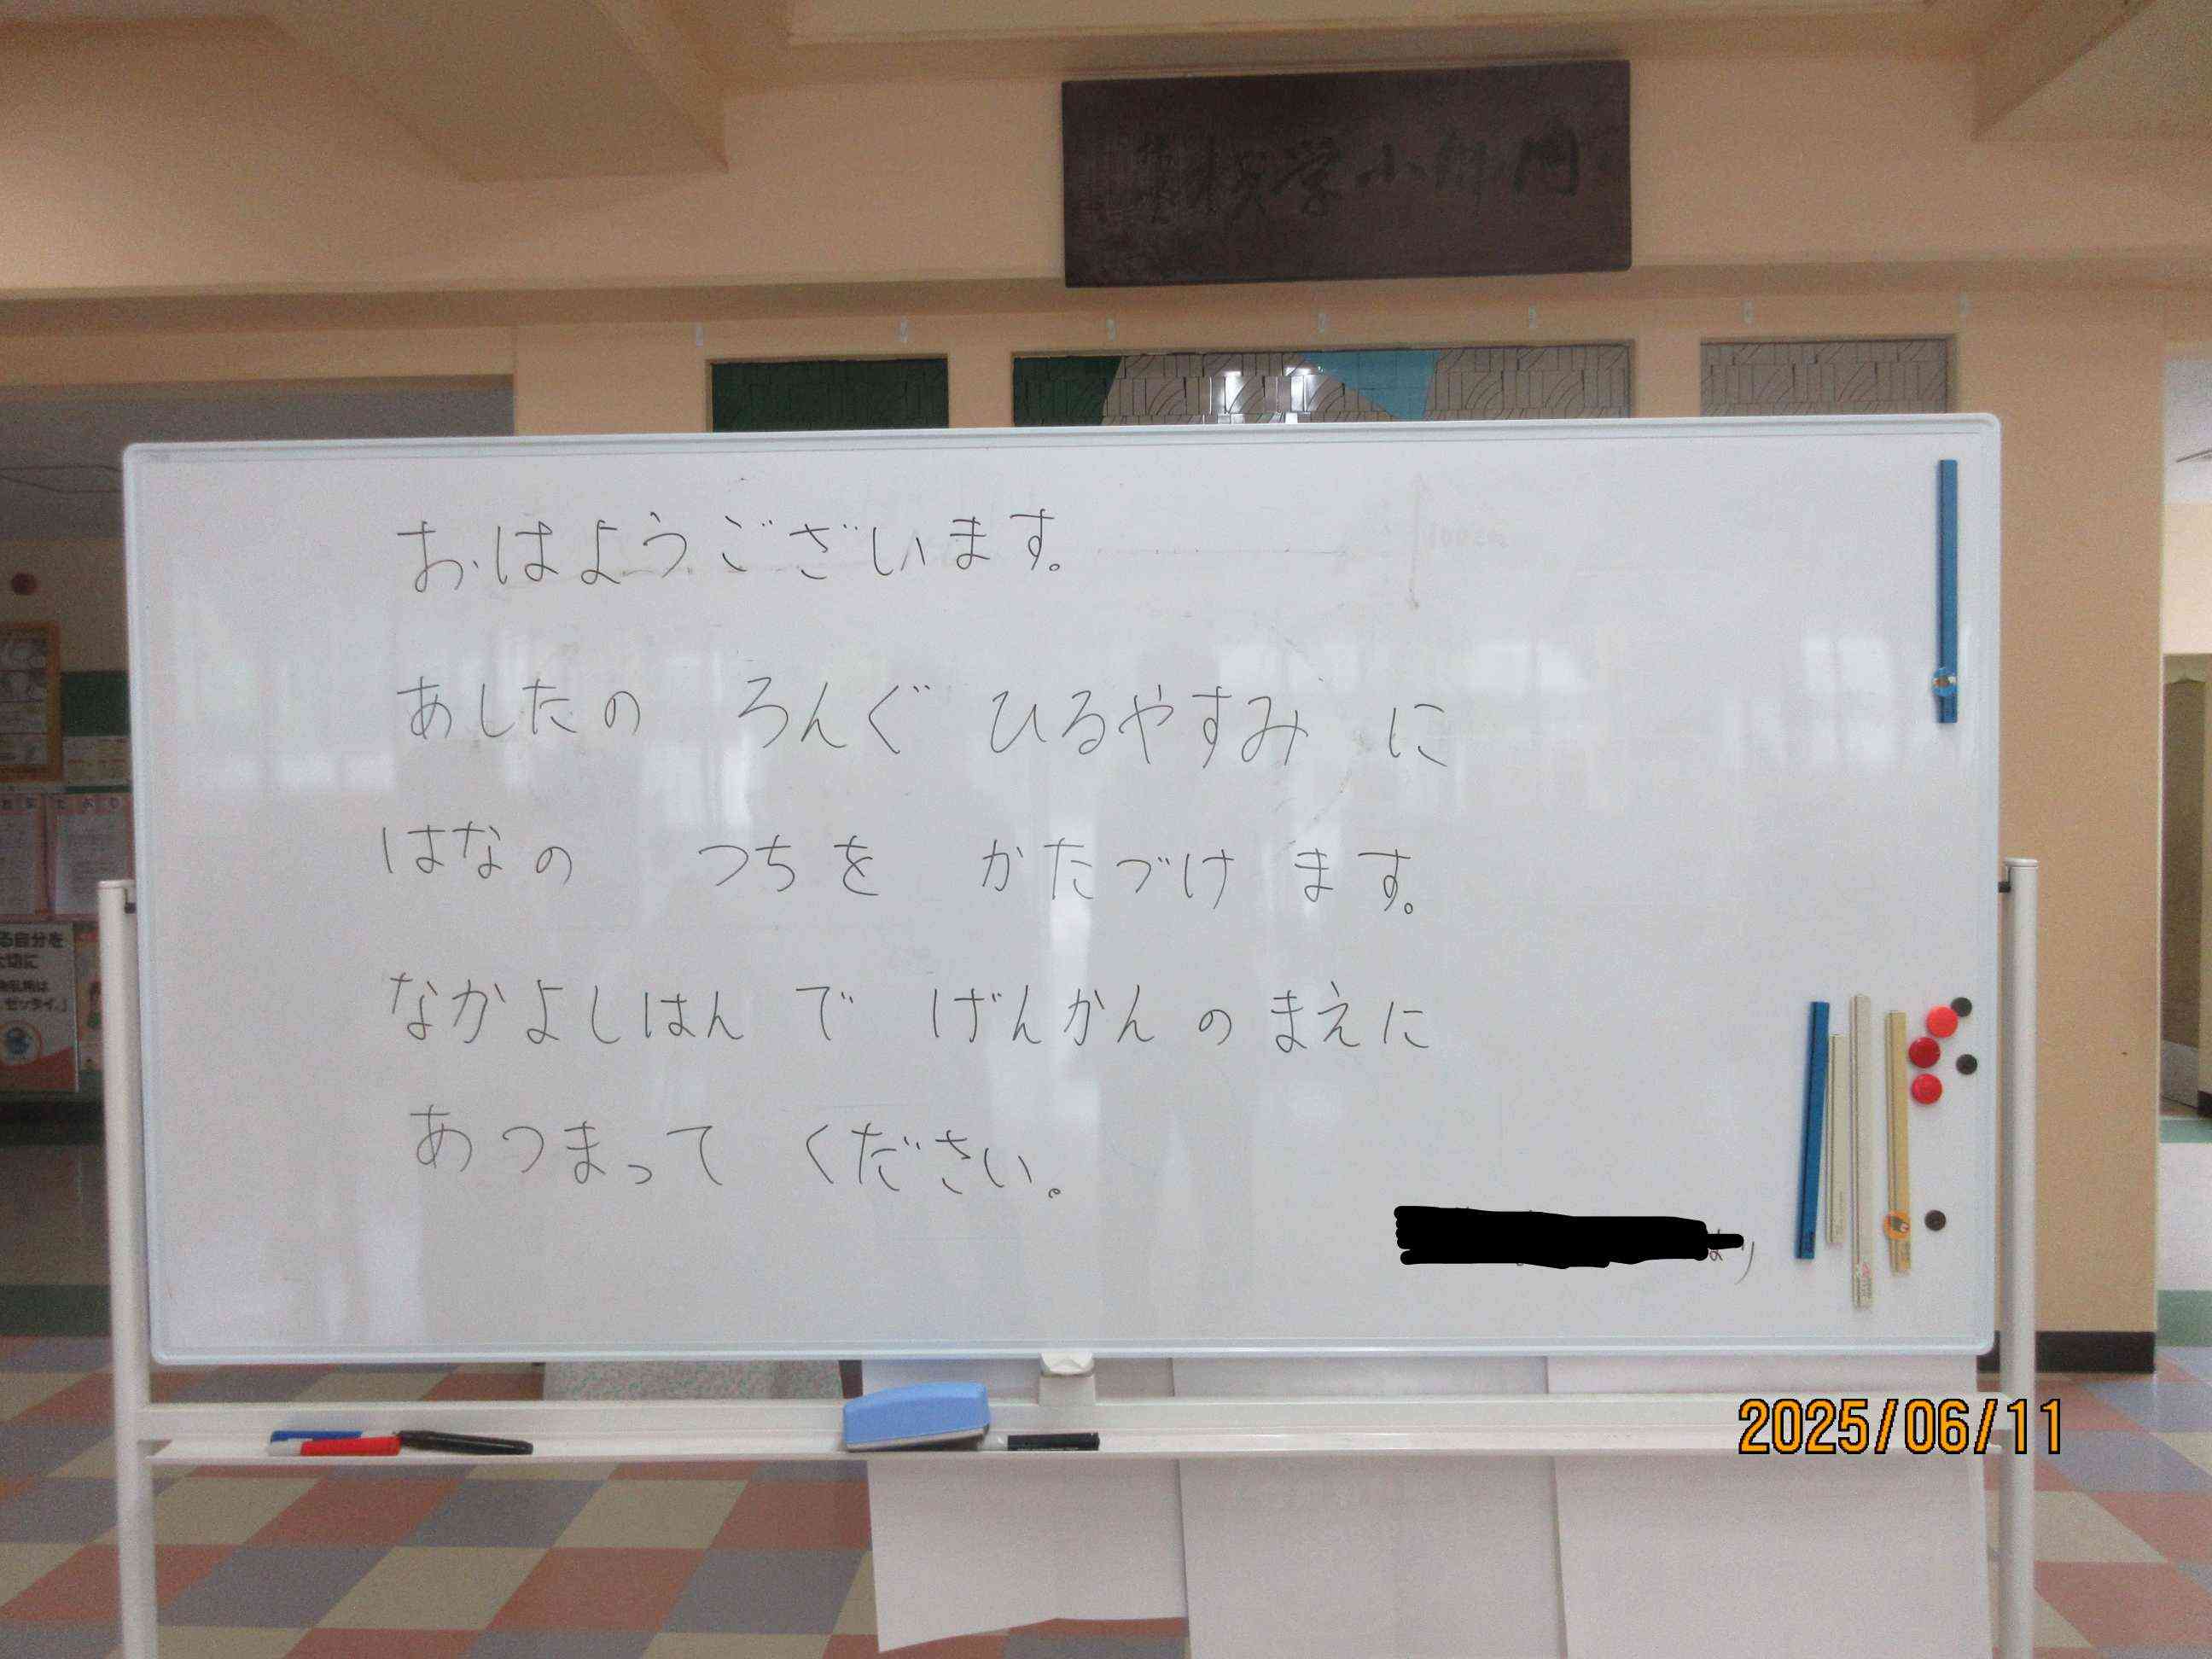 おはようございます。
あしたの ろんぐ ひるやすみ に
はなの つちを かたづけ ます。
なかよしはん で げんかん の まえに
あつまって ください。
より
る自分を
切に
ゼッタイ。」
2025/06/11